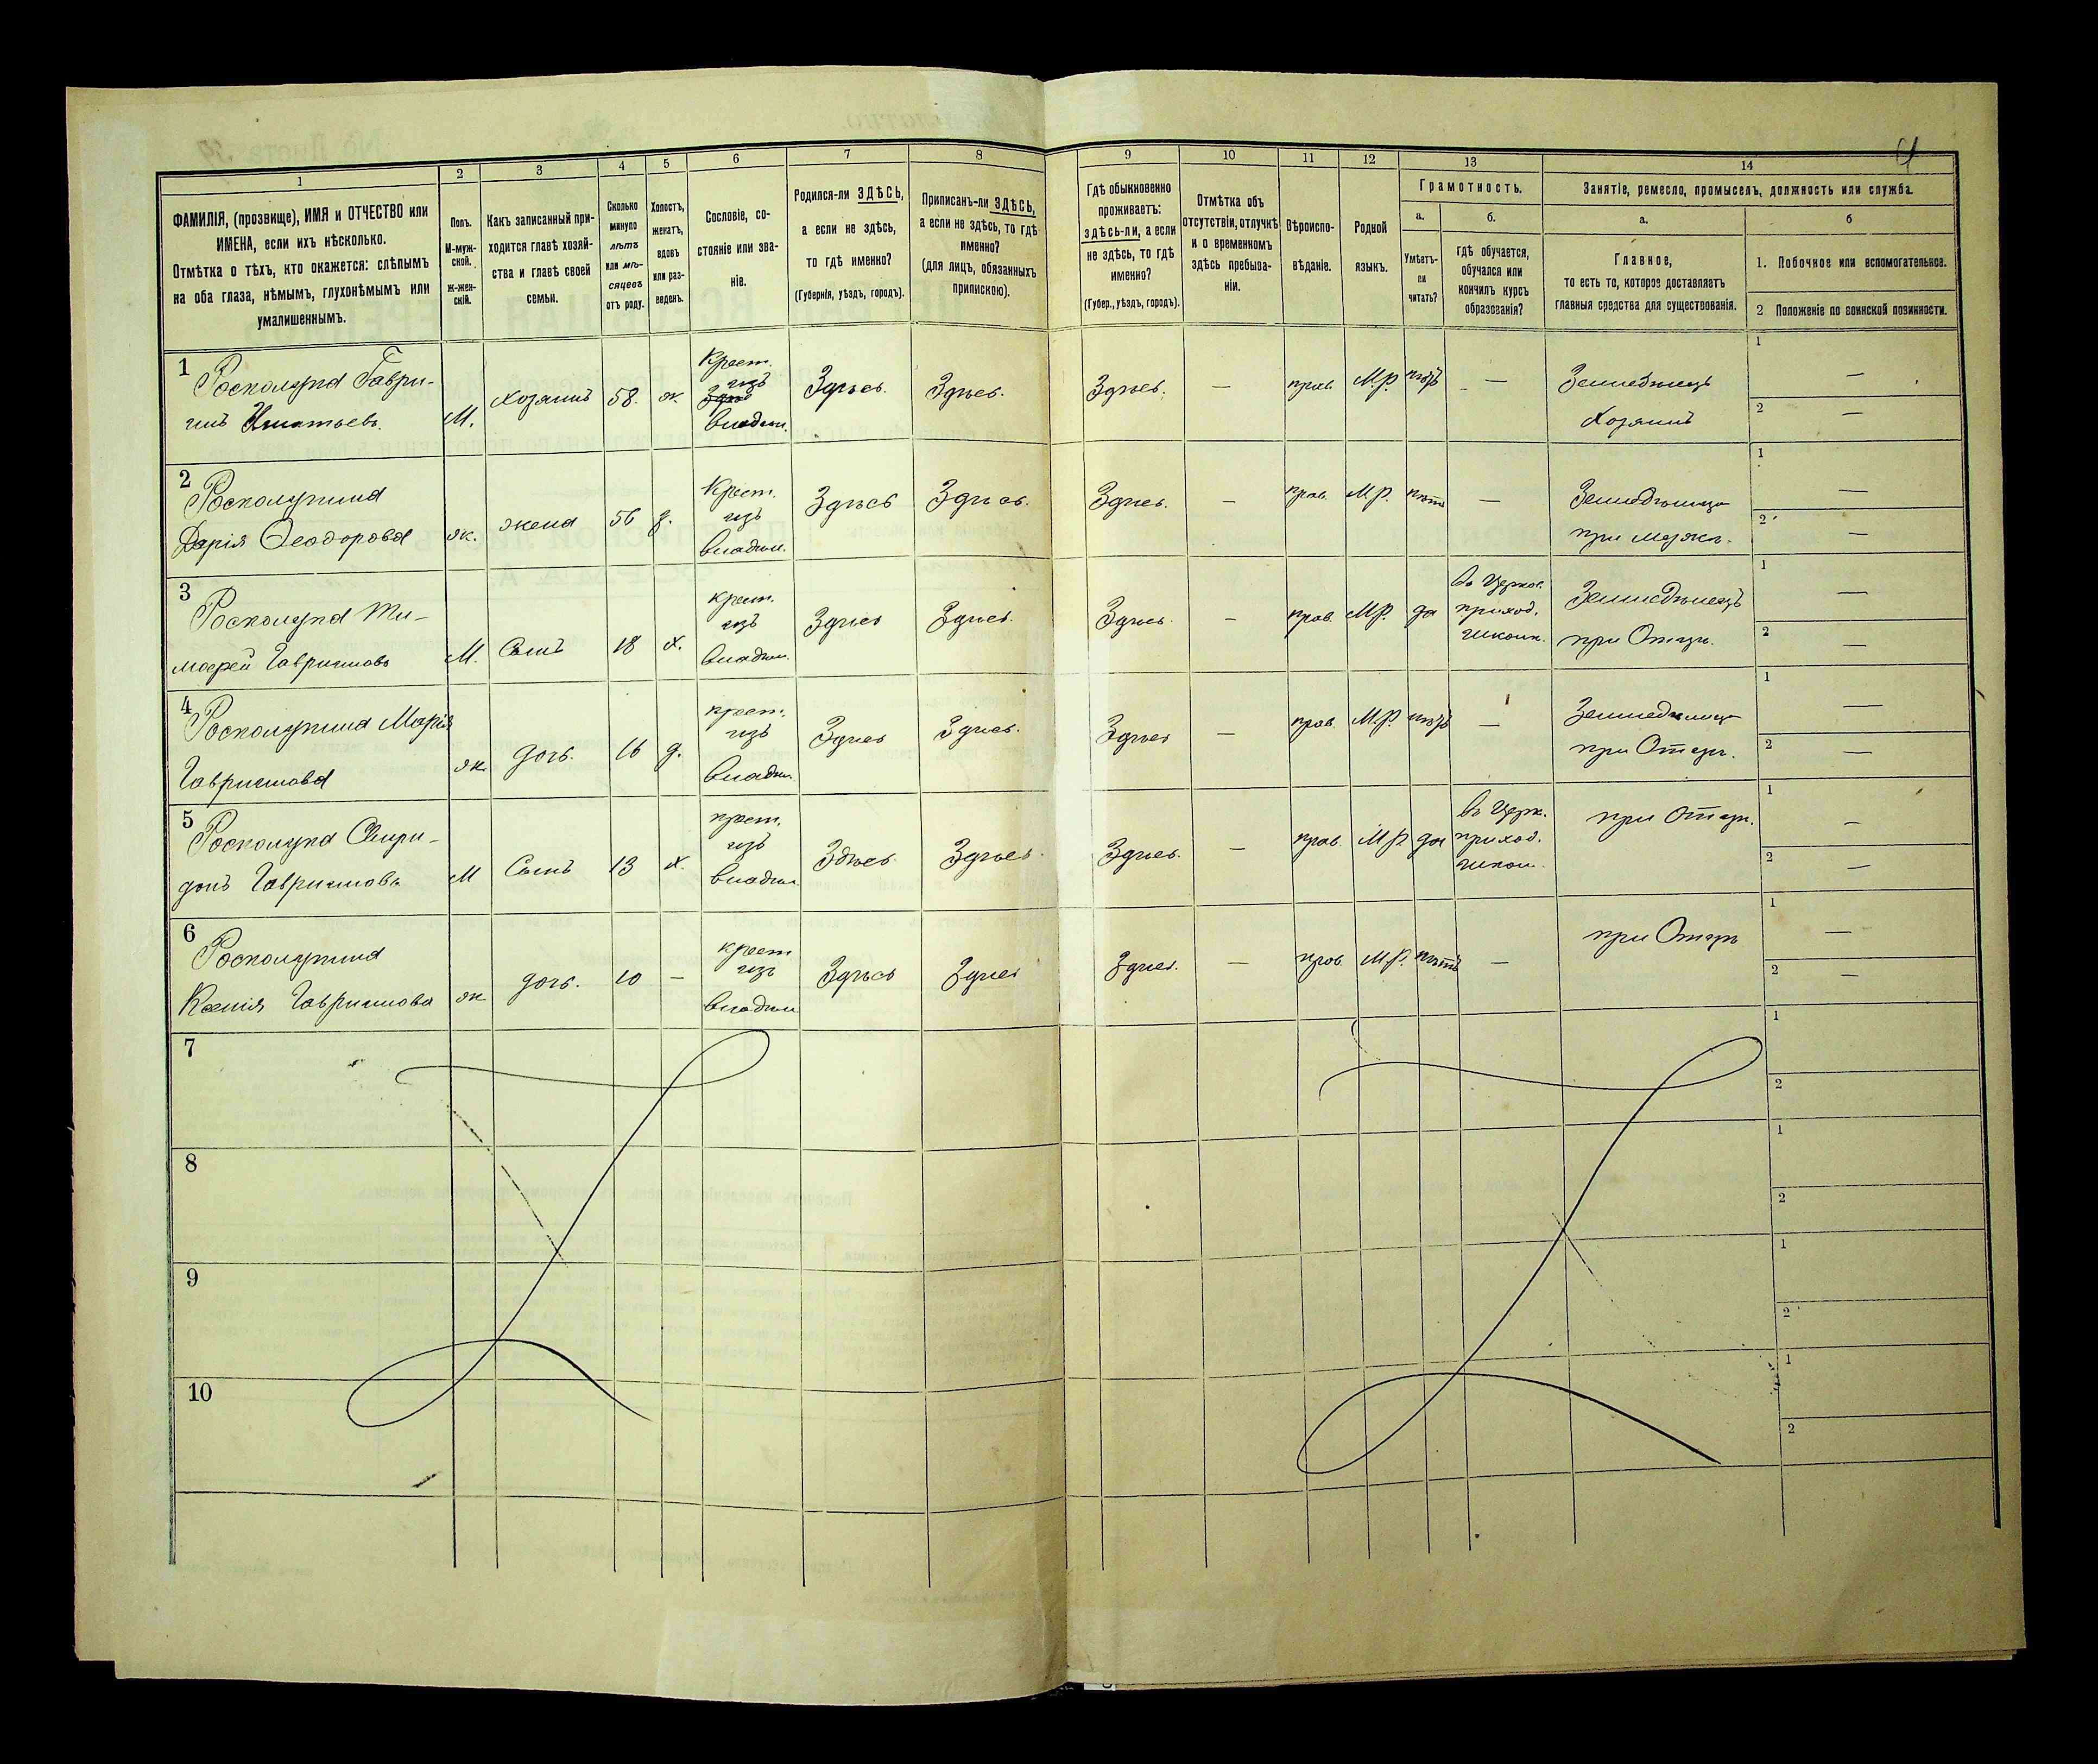 1
2
3
4
5
6
7
8
9
10
11
12
13
14
ФАМИЛІЯ, (прозвище), ИМЯ и ОТЧЕСТВО или
ИМЕНА, если ихъ нѣсколько.
Отмѣтка о тѣхъ, кто окажется: слѣпымъ
на оба глаза, нѣмымъ, глухонѣмымъ или
умалишеннымъ.
Полъ.
М-муж-
ской.
ж-жен-
скій.
Какъ записанный при-
ходится главѣ хозяй-
ства и главѣ своей
семьи.
Сколько
минуло
лѣтъ
или мѣ-
сяцевъ
отъ роду.
Холостъ,
женатъ,
вдовъ
или раз-
веденъ.
Сословіе, со-
стояніе или зва-
ніе.
Родился-ли ЗДѢСЬ,
а если не здѣсь,
то гдѣ именно?
(Губернія, уѣздъ, городъ).
Приписанъ-ли ЗДѢСЬ,
а если не здѣсь, то гдѣ
именно?
(для лицъ, обязанныхъ
припискою).
Гдѣ обыкновенно
проживаетъ:
здѣсь-ли, а если
не здѣсь, то гдѣ
именно?
(Губер., уѣздъ, городъ).
Отмѣтка объ
отсутствіи, отлучкѣ
и о временномъ
здѣсь пребыва-
ніи.
Вѣроиспо-
вѣданіе.
Родной
языкъ.
Грамотность.
а.
б.
Умѣетъ-
ли
читать?
гдѣ обучается,
обучался или
кончилъ курсъ
образованія?
Занятіе, ремесло, промыселъ, должность или служба.
а.
б
Главное,
то есть то, которое доставляетъ
главныя средства для существованія.
1. Побочное или вспомогательное.
2 Положеніе по воинской повинности.
1
Росколупа Гаври-
илъ Игнатьевъ.
М.
Хозяинъ
58.
ж.
Крест.
изъ
Владѣл.
Здѣсь.
Здѣсь.
Здѣсь.
—
прав.
М.Р.
нѣтъ
—
Земледѣлецъ
Хозяинъ
1 —
2 —
2
Росколупина
Дарія Ѳеодорова
ж.
жена
56
з.
Крест.
изъ
Владѣл.
Здѣсь
Здѣсь.
Здѣсь.
—
прав.
М.Р.
нѣтъ
—
Земледѣлица
при Мужѣ.
1 —
2 —
3
Росколупа Ти-
моѳей Гавриловъ
М.
Сынъ
18
х.
крест.
изъ
Владѣл.
Здѣсь
Здѣсь.
Здѣсь.
—
прав.
М.Р.
да
Въ Церков.
приход.
школѣ.
Земледѣлецъ
при Отцѣ.
1 —
2 —
4
Росколупина Марія
Гаврилова
ж.
дочь.
16
д.
крест.
изъ
Владѣл.
Здѣсь
Здѣсь.
Здѣсь
—
прав.
М.Р.
нѣтъ
—
Земледѣлица
при Отцѣ.
1 —
2 —
5
Росколупа Спири-
донъ Гавриловъ
М
Сынъ
13
х.
крест.
изъ
Владѣл.
Здѣсь
Здѣсь.
Здѣсь.
—
прав.
М.Р
да
въ Церк.
приход.
школ.
при Отцѣ.
1 —
2 —
6
Росколупина
Ксенія Гаврилова
ж
дочь.
10
—
крест
изъ
Владѣл
Здѣсь
Здѣсь
Здѣсь.
—
прав.
М.Р.
нѣтъ
—
при Отцѣ
1 —
2 —
7
1
2
8
1
2
9
1
2
10
1
2